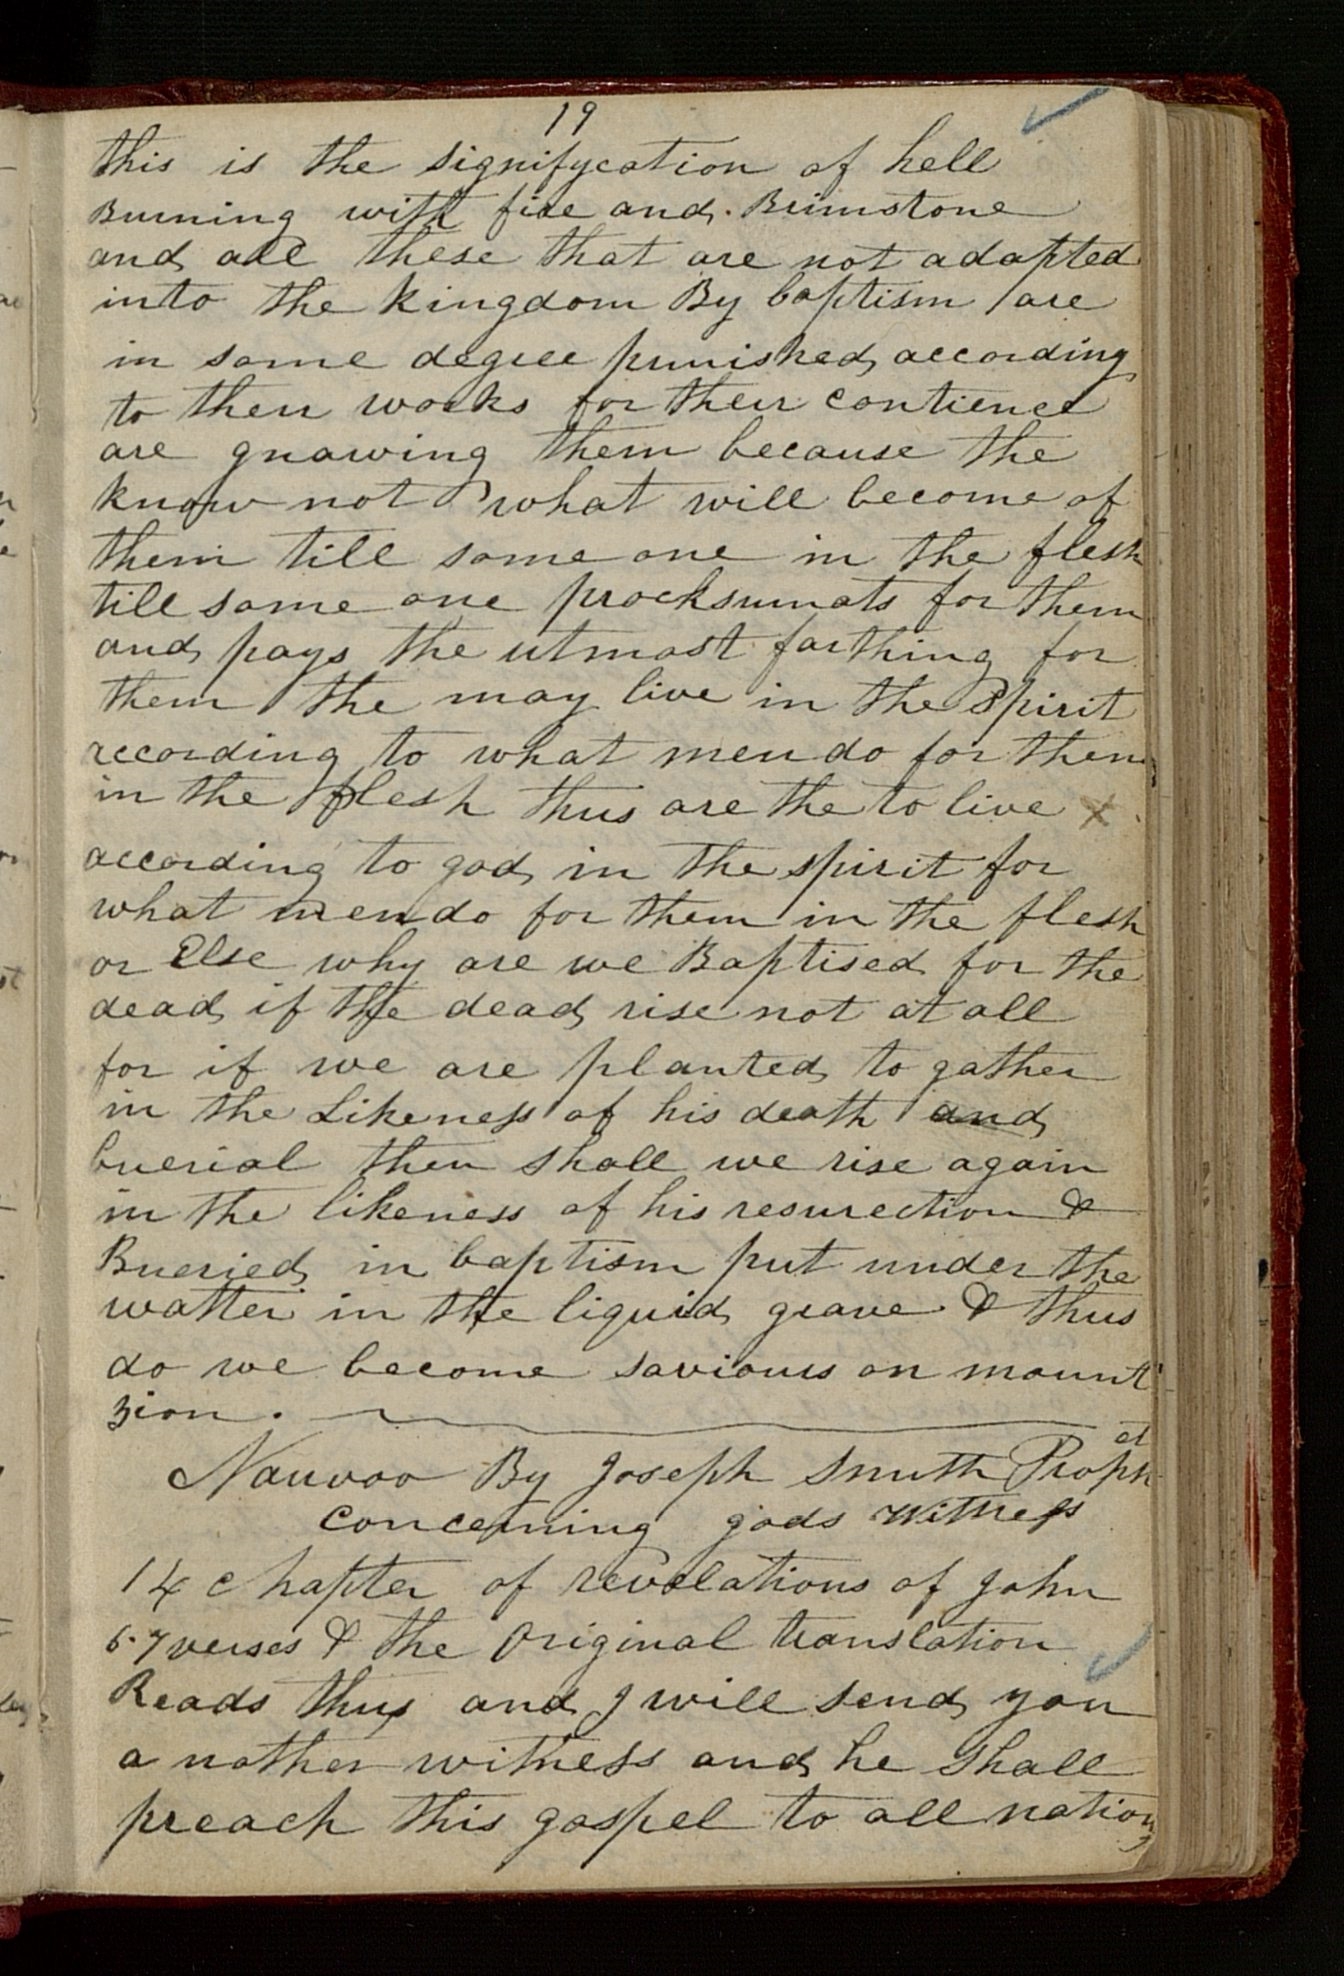 19
this is the signifycation of hell
Burning with fire and. Brimstone
and all these that are not adopted
into the kingdom By baptism are
in some degree punished according
to their works for their contience
are gnawing them because the
know not what will become of
them till some one in the flesh
till some one procksumats for them
and pays the utmost farthing for
them the may live in the spirit
according to what men do for them
in the flesh thus are the to live x
according to god in the spirit for
what men do for them in the flesh
or Else why are we Baptised for the
dead if the dead rise not at all
for if we are planted to gather
in the Likeness of his death and
buerial then shall we rise again
in the likeness of his resurection &
Bueried in baptism put under the
watter in the liquid grave & thus
do we become saviours on mount
zion.
Nauvoo By Joseph Smith Prophet
concerning gods Witness
14 chapter of revelations of John
6.7 verses & the original translation
Reads thus and I will send you
a nother witness and he shall
preach this gospel to all nations